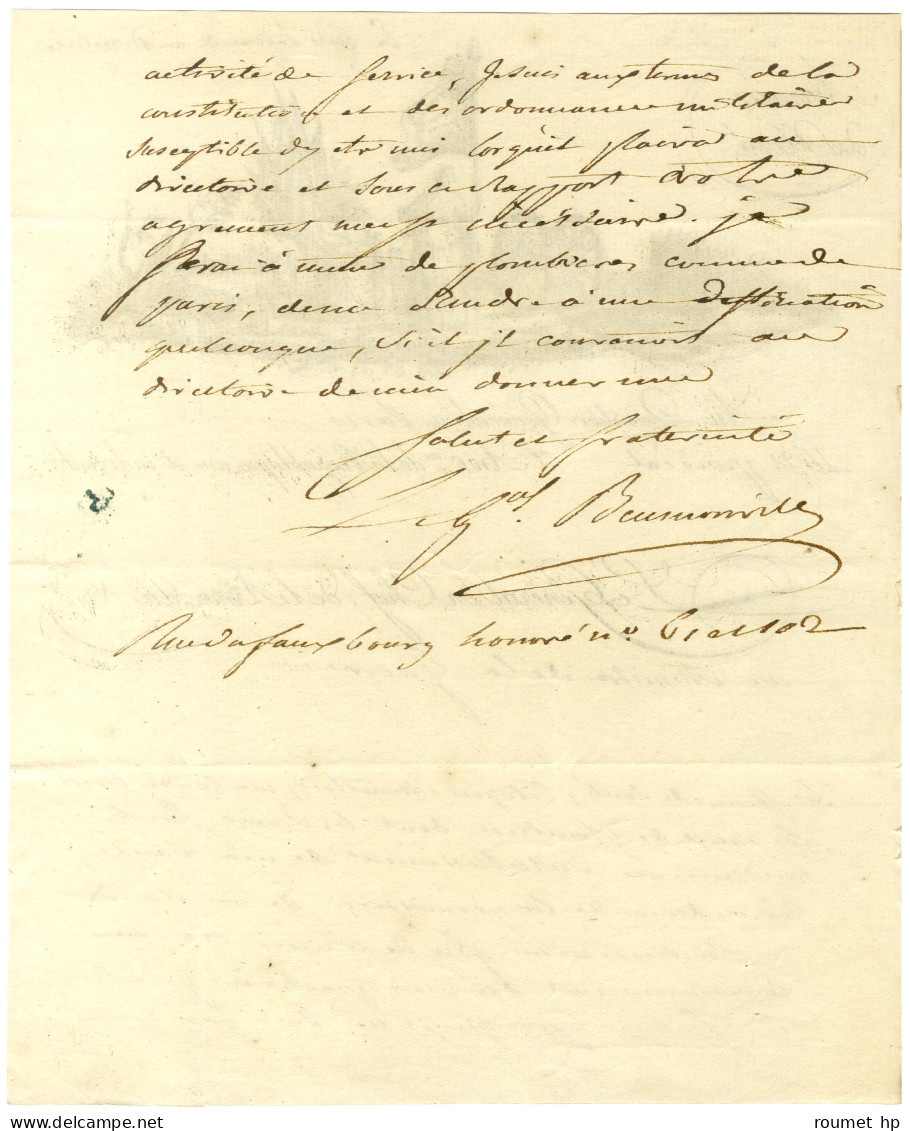 activité de service, Je suis aux termes de la
constitution et des ordonnances militaires
susceptible d'y etre mis lorsqu'il plaira au
directoire et sous ce Rapport votre
agrement m'est nécéssaire. je
serai à même de plombieres comme de
paris, de me rendre à une destination
quelconque, s'il
directoire de m'en donner une
Salut et fraternité
Le Gal. Beurnonville
Rue du fauxbourg honoré n°
roumet hp